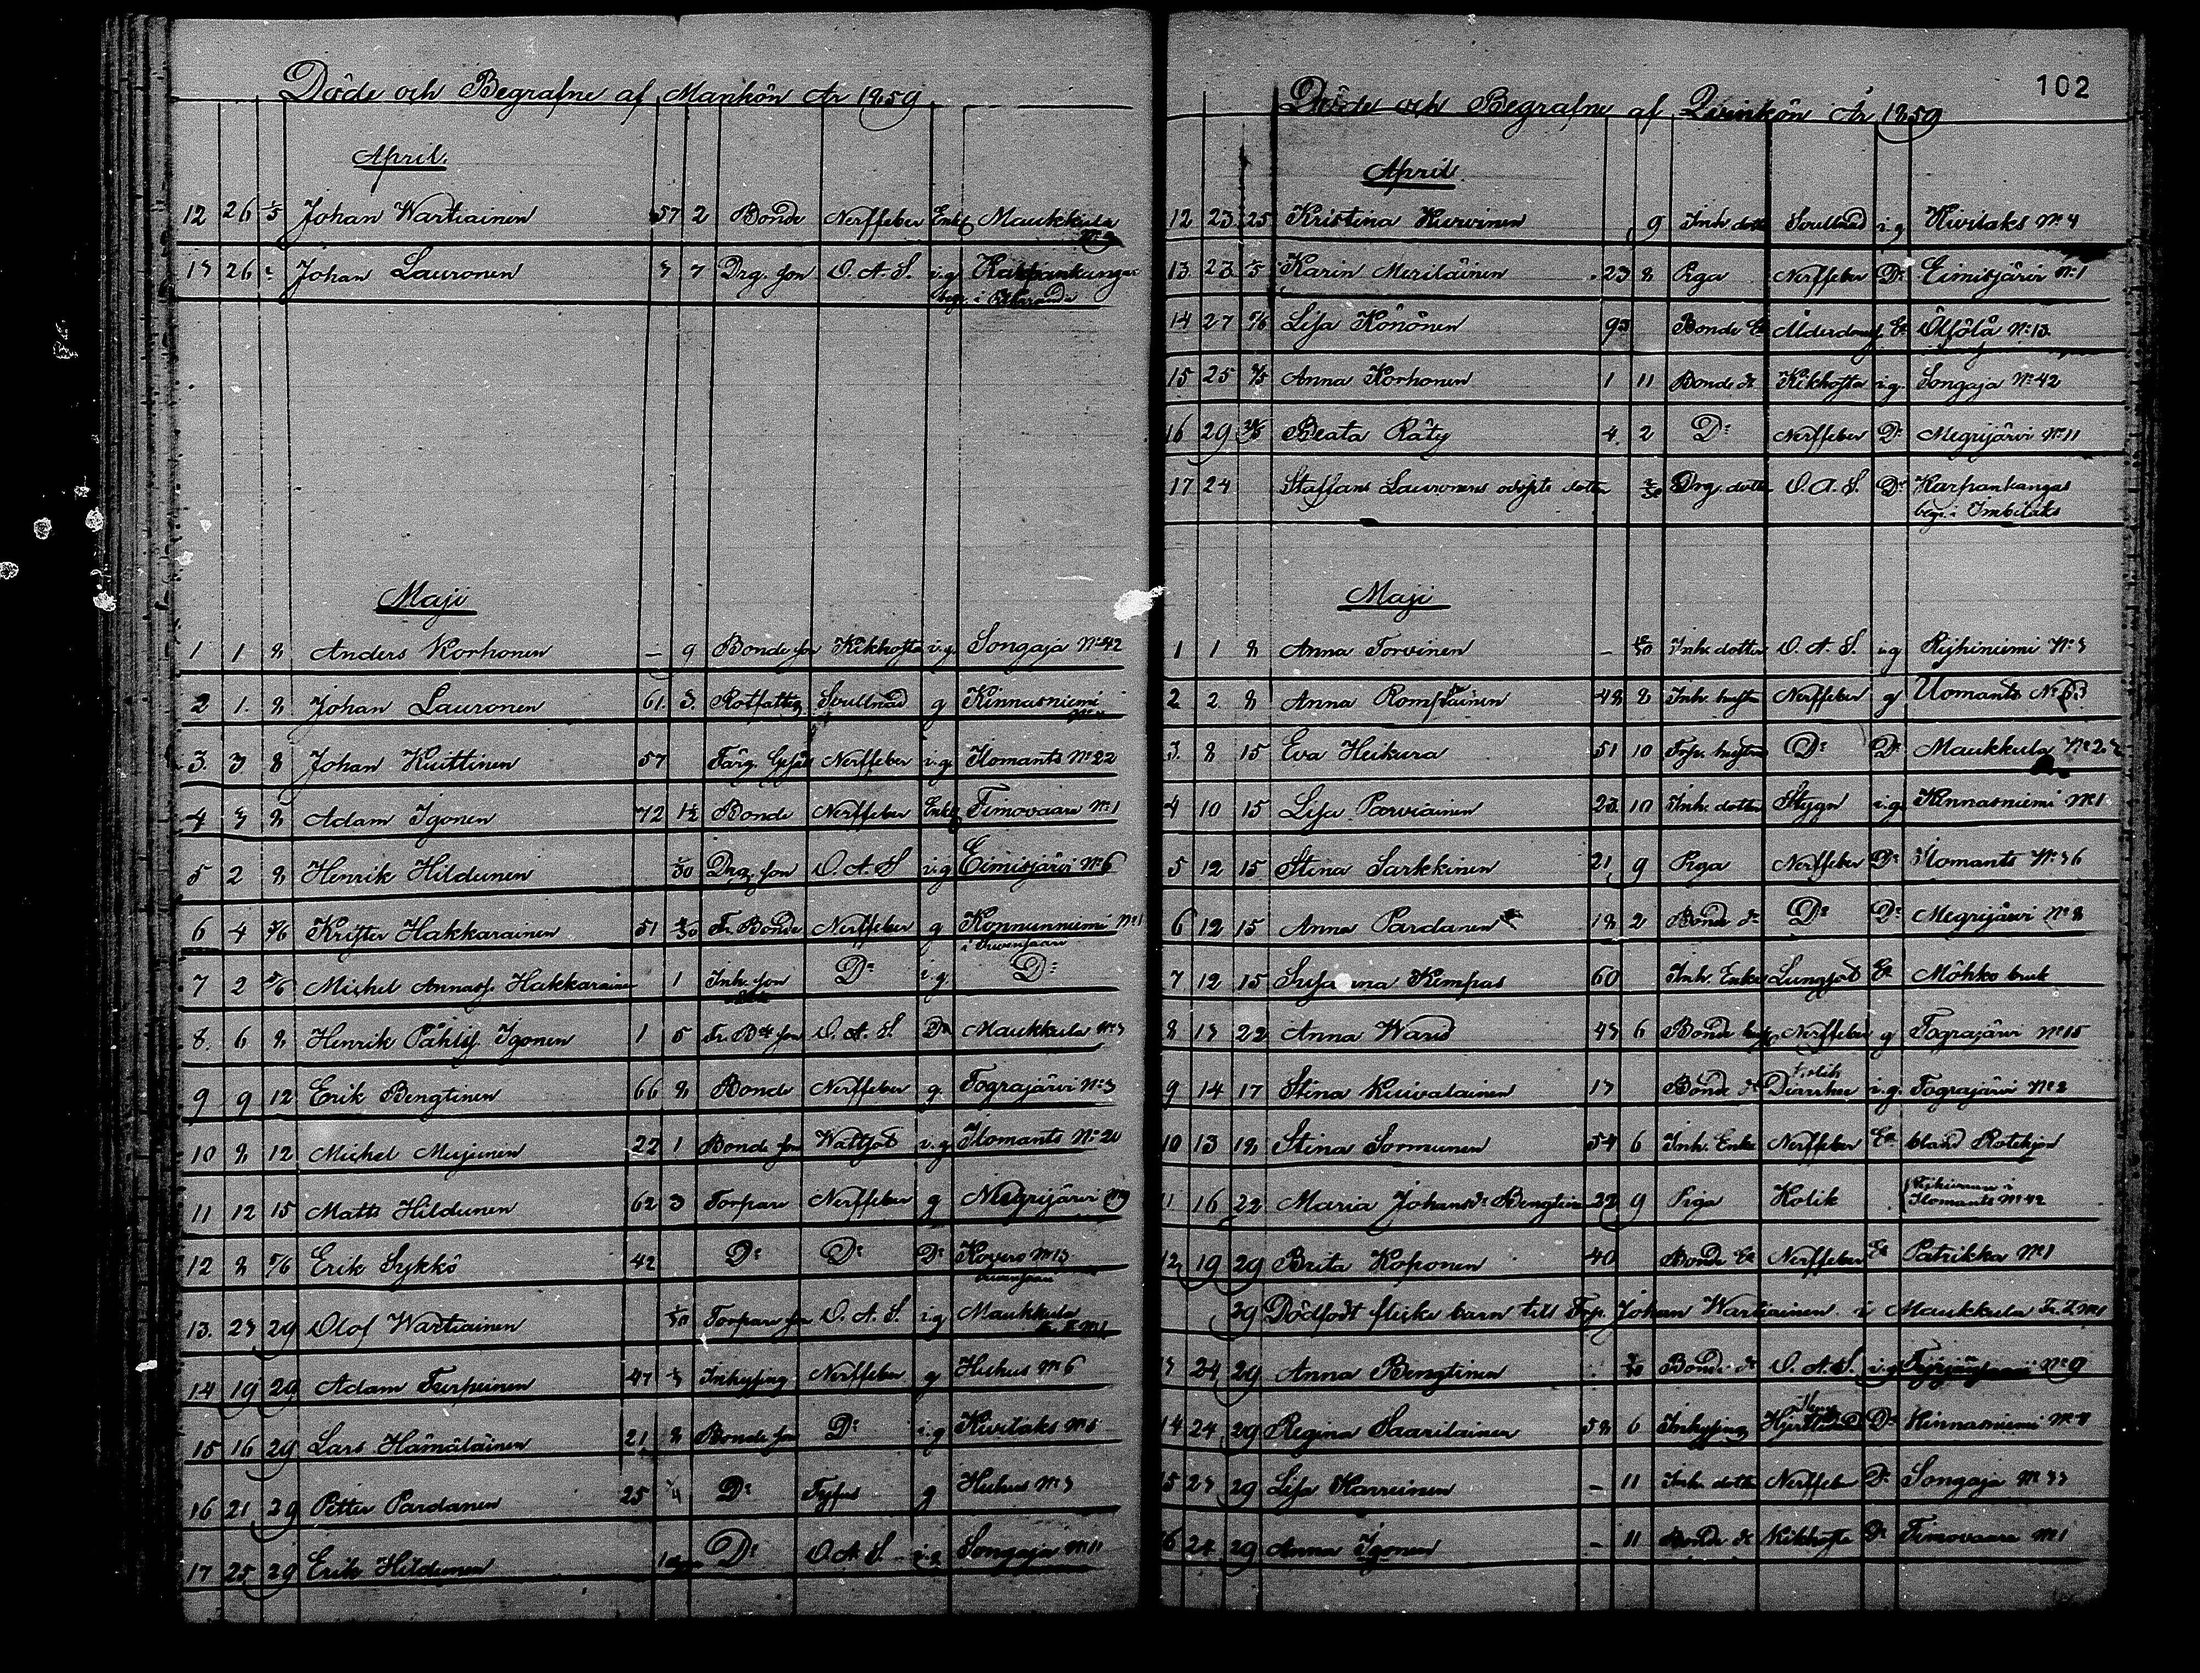 Döde och Begrafne af Mankön År 1859
April.
12 26 1/5 Johan Wartiainen 57 2 Bonde Nerffeber Enkl Maukkula
13 26 Johan Lauronen 3 7 Drg. son O. A. S. i.g Karpankangas
begr. i
Maji
1 1 8 Anders Korhonen – 9 Bonde son Kikhosta i.g. Songaja No 42
2 1. 8 Johan Lauronen 61. 3. Rotfattig g Kinnasniemi
3. 3 8 Johan Kuittinen 57 Färg. Gesäll Nerffeber i.g Ilomants No 22
4 3 8 Adam Igonen 72 1½ Bonde Nerffeber Enkl Timovaara No 1
5 2 8 Henrik Hildunen 1/30 Drg. son O. A. S i.g Eimisjärvi No 6
6 4 Krister Hakkarainen 51 Fr. Bonde Nerffeber g Konnunniemi No 1
7 2 5/6 Michel Annass. Hakkarainen 1 Inh. son Do i.g Do
8. 6 8 Henrik Påhlss. Igonen 1 5 Fr. Bde son O. A. S. Do Maukkula No 3
9 9 12 Erik Bengtinen 66 8 Bonde Nerffeber g. Tograjärvi No 3
10 8 12 Michel Mujunen 22 1 Bonde son Wattsot i.g Ilomants No 20
11 12 15 Matts Hildunen 62 3 Torpare Nerffeber g Megrijärvi No 9
12 8 5/6 Erik Sykkö 42 Do Do Do Kovero No 13
13. 23 29 Olof Wartiainen 1/30 Torpare son O. A. S. i.g Maukkula
14 19 29 Adam Turpeinen 47 Inhysing Nerffeber g Huhus No 6
15 16 29 Lars Hämäläinen 21 8 Bonde son Do i.g Kivilaks No 5
16 21 29 Petter Pardanen 25 Do Tyfus g Huhus No 3
17 25 29 Erik Hildunen Do O. A. S. i.g Songaja No 11
102
Döde och Begrafne af Qvinkön År 1859
April.
12 23 25 Kristina Kurvinen 9 Inh. dotter i.g Kivilaks No 4
13 23 1/5 Karin Meriläinen 23 8 Piga Nerffeber Do Eimisjärvi No 1
14 27 Lisa Könönen 93 Bonde Ea Ålderdoms Ea No 13
15 25 Anna Korhonen 1 11 Bonde dr Kikhosta i.g. Songaja No 42
16 29 Beata Räty 4 2 Do Nerffeber Do Megrijärvi No 11
17 24 Staffans Lauronens odöpta dotter Drg. dotter O. A. S. Do Karpankangas
begr. i Imbilaks
Maji
1 1 8 Anna Torvinen – Inh. dotter O. A. S. i.g No 3
2 2 8 Anna Rompainen 48 8 Inh. hustru Nerffeber g Ilomants No 63
3. 8 15 Eva Heikura 51 10 Trp. hustru Do Do Maukkula
4 10 15 Lisa Parviainen 23 10 Inh. dotter Stygn i.g. Kinnasniemi No 1
5 12 15 Stina Sarkkinen 21 9 Piga Nerffeber Do Ilomants No 36
6 12 15 Anna Pardanen 18 2 Bonde dr Do Do Megrijärvi No 8
7 12 15 Susanna Kempas 60 Inh. Enka Lungsot Ea Möhkö bruk
8 13 22 Anna Waris 43 6 Bonde hust. Nerffeber g Tograjärvi No 15
9 14 17 Stina Kuivalainen 13 Bonde dr Diarrhee i.g. Tograjärvi No 2
10 13 18 Stina Sormunen 54 6 Inh. Enka Nerffeber Ea bland Rotehjon
11 16 22 Maria Johansdr Bengtinen 22 9 Piga Kolik Ilomants No 42
12 19 29 Brita Koponen 40 Bonde Ea Nerffeber Ea Patrikka No 1
29 Dödfödt flicke barn till Trp. Johan Wartiainen i Maukkula
13 24 29 Anna Bengtinen Bonde dr O. A. S. i.g No 9
14 24 29 Regina Saarelainen 58 6 Inhysing Do Kinnasniemi
15 23 29 Lisa Karreinen – 11 Inh. dotter Nerffeber Do Songaja No 33
16 24 29 Anna Igonen – 11 Bonde dr Kikhosta Do Timovaara No 1